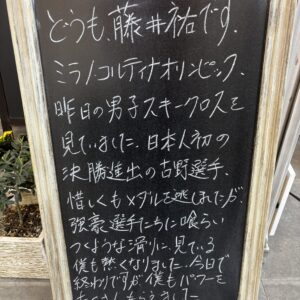 どうも、藤井祐です。
ミラノ・コルティナオリンピック、
昨日の男子スキークロスを
見ていました。日本人初の
決勝進出の古野選手、
惜しくもメダルを逃しましたが、
強豪選手たちに喰らい
つくような滑りに、見ている
僕も熱くなりました。今日で
終わりですが、僕もパワーを
たくさんもらえました